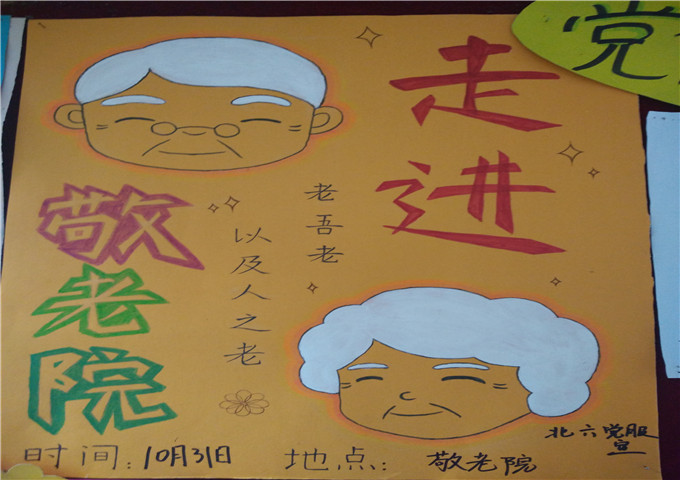 党
走进
敬老院
老吾老
以及人之老
时间：10月31日 地点：敬老院
北六党服
宣